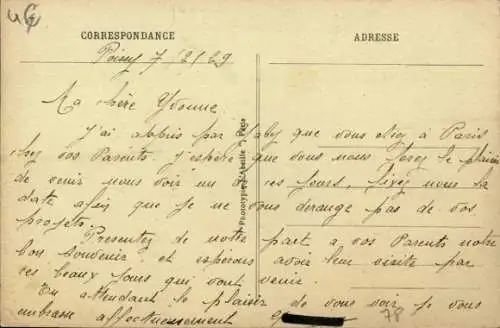 CORRESPONDANCE
ADRESSE
Poissy 7/2/29
Ma chère Yvonne
J'ai appris par Gaby que vous étiez à Paris
chez vos Parents. J'espère que vous nous ferez le plaisir
de venir nous voir un de ces jours, fixez nous la
date afin que je ne vous dérange pas de vos
projets.
Présentez de notre part a vos Parents notre
bon souvenir et espérons avoir leur visite par
ces beaux jours qui vont venir.
En attendant le plaisir de vous voir je vous
embrasse affectueusement
78
Phototypie l'Abeille, Paris